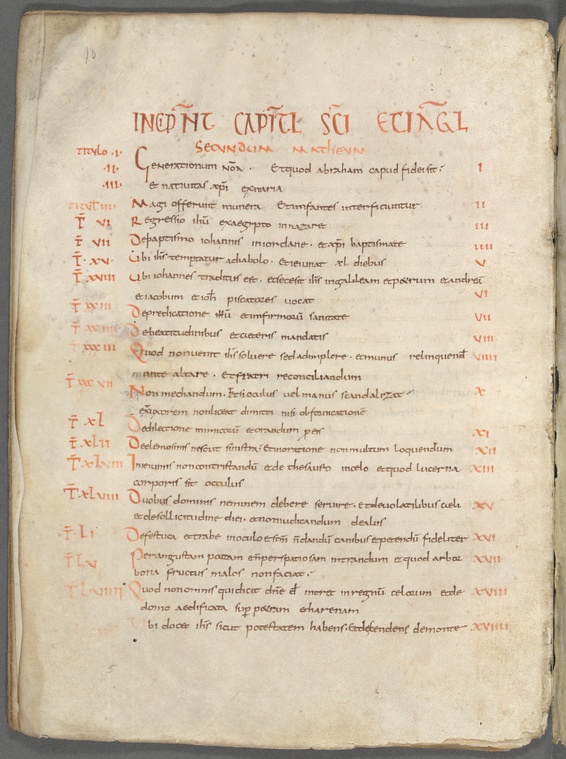 INCIPIUNT CAPITL SCI EUANGL
SECUNDUM MATHEUM
TITULO ·I· Generationum nōa · Et quod abraham capud fidei sit : I
·II·
·III· et nativitas xpi ex maria
Magi offerunt munera Et infantes interficiuntur II
T̄ VI Regressio ihu ex aegypto in nazare III
T̄ VII De baptismo iohannis in iordane · et xpi baptismate IIII
T̄ · XV · Ubi ihs temptatur a diabolo · Et ieiunat xl diebus V
T̄ XVIII Ubi iohannes traditus est · et secesit ihs in galileam et petrum et andreū
et iacobum et ioh piscatores vocat VI
T̄ XXIII De predicatione ihu et infirmorū sanitate VII
De beatitudinibus et ceteris mandatis VIII
T̄ XXXIII Quod non venit ihs solvere sed adimplere · et munus relinquend VIIII
ante altare · Et fratri reconciliandum
Non mechandum · Et si oculus vel manus scandalizat X
uxorem non liceat dimitti nisi ob fornicatione
T̄ · XL De dilectione inimicorū et orandum pro eis XI
T̄ · XLII De elemosinis nesciat sinistra · Et in oratione non multum loquendum XII
In ieiuniis non contristandū et de thesauro in celo et quod lucerna XIII
corporis sit occulus
T̄ · XLVIII Duobus dominis neminem debere servire · Et de volatilibus celi XV
et de sollicitudine diei · et non iudicandum de aliis
T̄ · LI De festuca et trabe in oculo et scm n dandū canibus et petendū fideliter XVI
T̄ LV Per angustam portam et n per spatiosam intrandum et quod arbor XVII
bona fructus malos non faciat
Quod non omnis qui dicit dne dne intret in regnū celorum et de XVIII
domo aedificata sup petram et harenam
Ubi docet ihs sicut potestatem habens · Et descendens de monte XVIIII